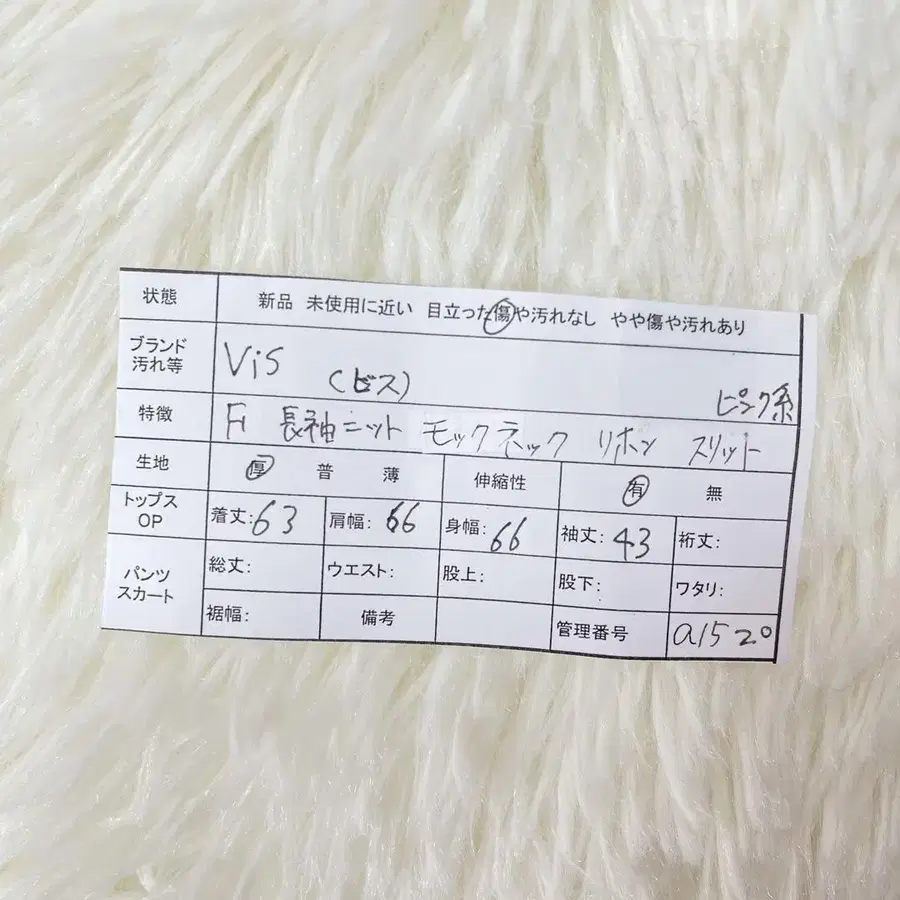 状態 新品 未使用に近い 目立った傷や汚れなし やや傷や汚れあり
ブランド 汚れ等 ViS (ビス) ピンク系
特徴 F 長袖ニット モックネック リボン スリット
生地 厚 普 薄 伸縮性 有 無
トップス OP 着丈:63 肩幅:66 身幅:66 袖丈:43 裄丈:
パンツ スカート 総丈: ウエスト: 股上: 股下: ワタリ:
裾幅: 備考 管理番号 a1520